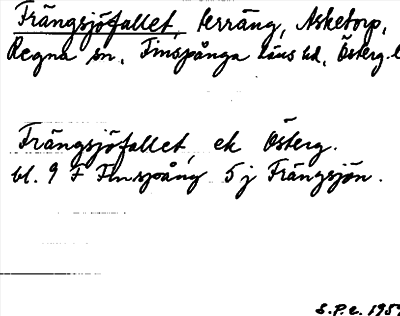 Frängsjöfallet, terräng, Asketorp,
Regna sn, Finspånga läns hd, Österg. l
Frängsjöfallet, ek Österg.
bl. 9 F Finspång 5 j Frängsjön.
S.P.c. 195